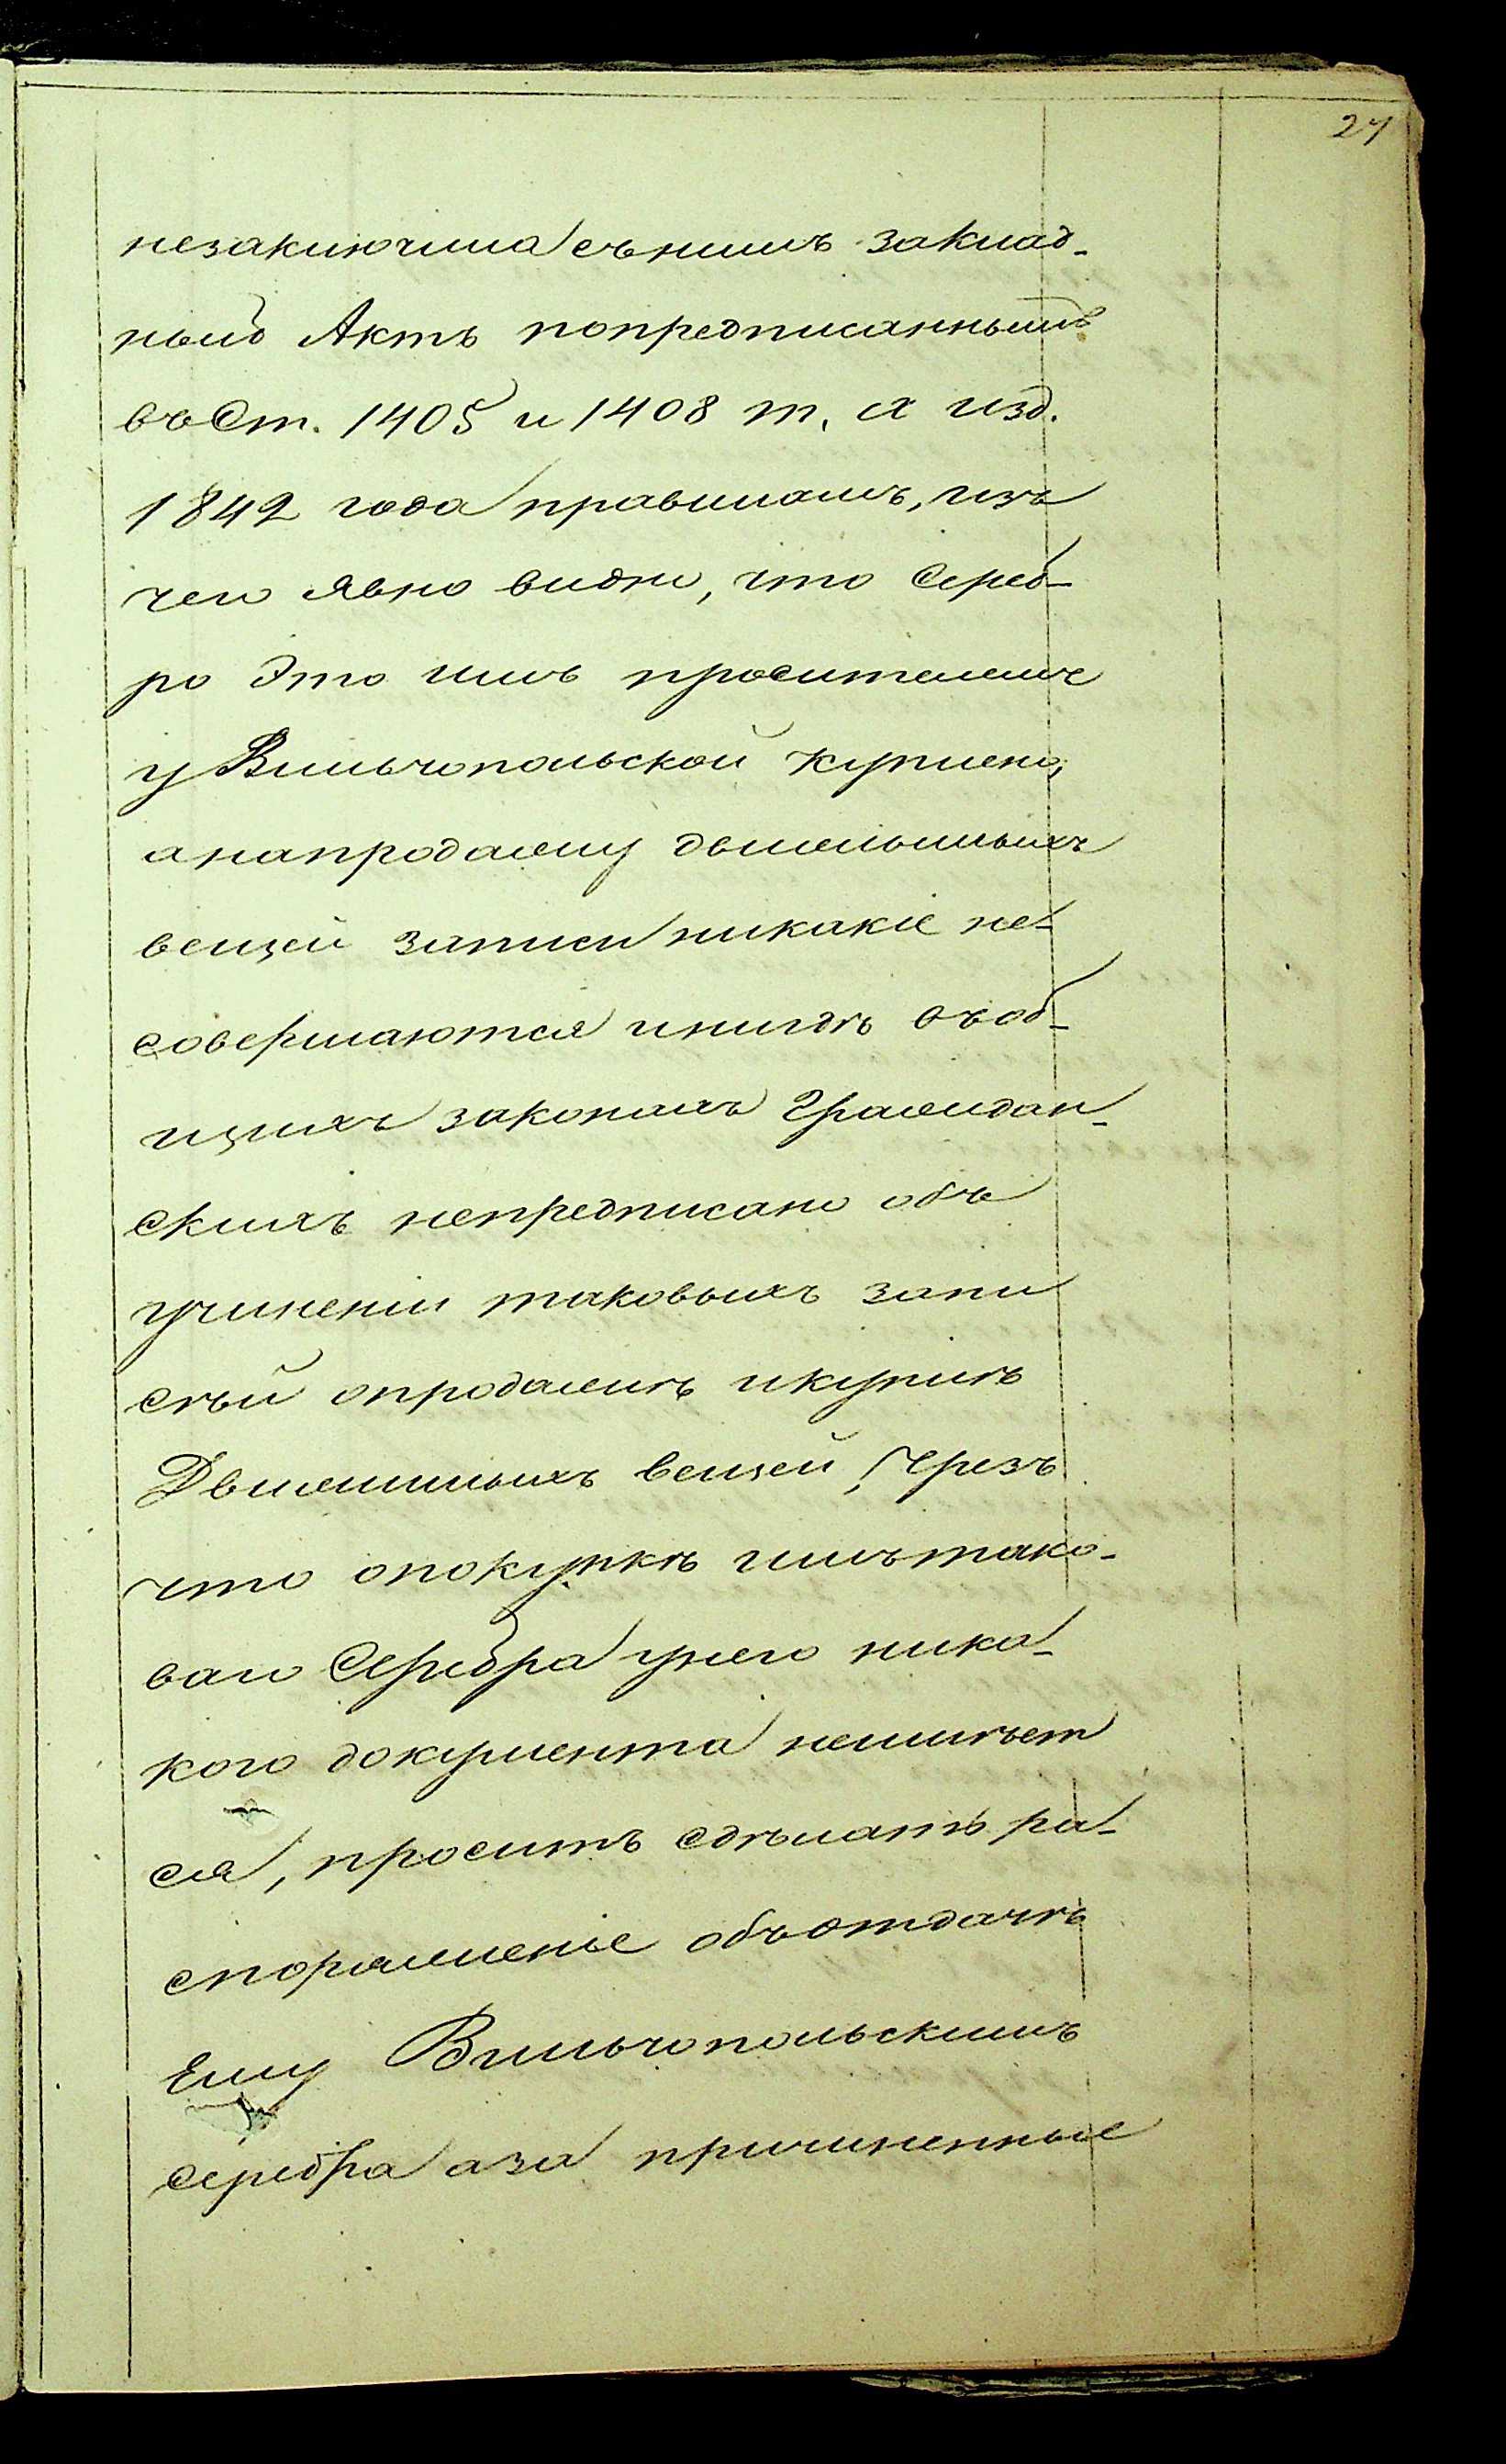 27
незаключила съ нимъ заклад-
ный Актъ попредписаннымъ
въ Ст. 1405 и 1408 т. X изд.
1842 года правиламъ, изъ
чего явно видно, что Сереб-
ро Это имъ просителемъ
у Вильчопольской куплено,
а напродажу движимыхъ
вещей записи никакіе не-
совершаются и нигдѣ въ об-
щихъ законахъ Граждан-
скихъ непредписано объ
учиненіи таковыхъ запи
сѣй опродажѣ и куплѣ
Движимыхъ вещей, Чрезъ
что опокупкѣ имъ тако-
ваго Серебра унего ника-
кого документа неимѣет
ся, проситъ сдѣлать ра-
споряженіе объ отдачѣ
Ему Вильчопольскимъ
серебра а за причиненные